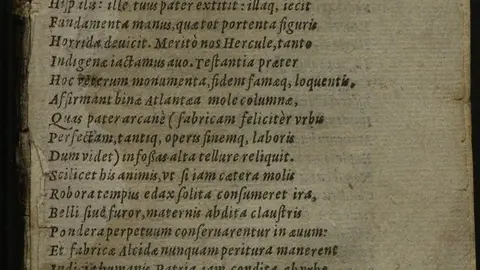 Hispalis: ille tuus pater extitit: illaq, iecit
Fundamenta manus, quæ tot portenta figuris
Horridæ deuicit. Meritò nos Hercule, tanto
Indigenæ iactamus auo. Testantia præter
Hoc veterum monumenta, fidem famæq, loquentis,
Affirmant binæ Atlantæa mole columnæ,
Quas pater arcanè (fabricam feliciter vrbis
Perfectam, tantiq, operis finemq, laboris
Dum videt) infossas alta tellure reliquit.
Scilicet his animis, vt si iam cætera molis
Robora tempus edax solita consumeret ira,
Belli siuè furor, maternis abdita claustris
Pondera perpetuum conseruarentur in æuum:
Et fabricæ Alcidæ nunquam peritura manerent
Indicia humanis Patria iam condita ab vrbe